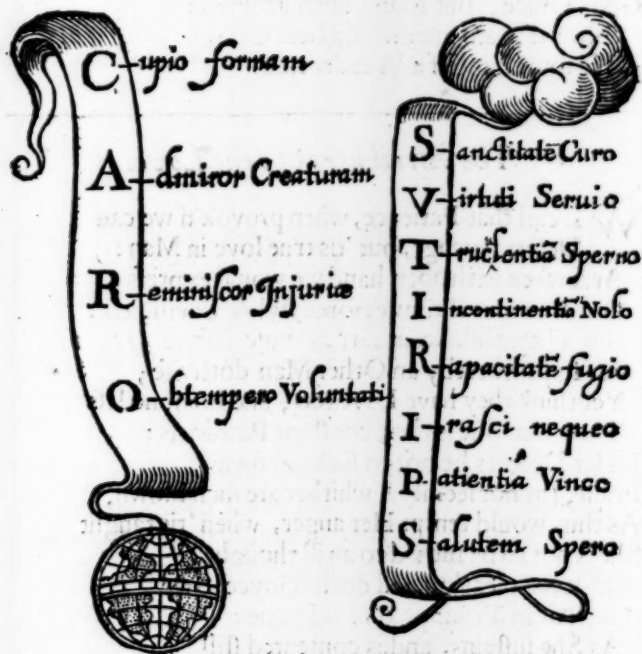 C-upio formam
A-dmiror Creaturam
R-eminiſcor Injuriæ
O-btempero Voluntati
S-anctitatē Curo
V-irtuti Seruio
T-ruculentiā Sperno
I-ncontinentiā Nolo
R-apacitatē fugio
I-raſci nequeo
P-atientia Vinco
S-alutem Spero